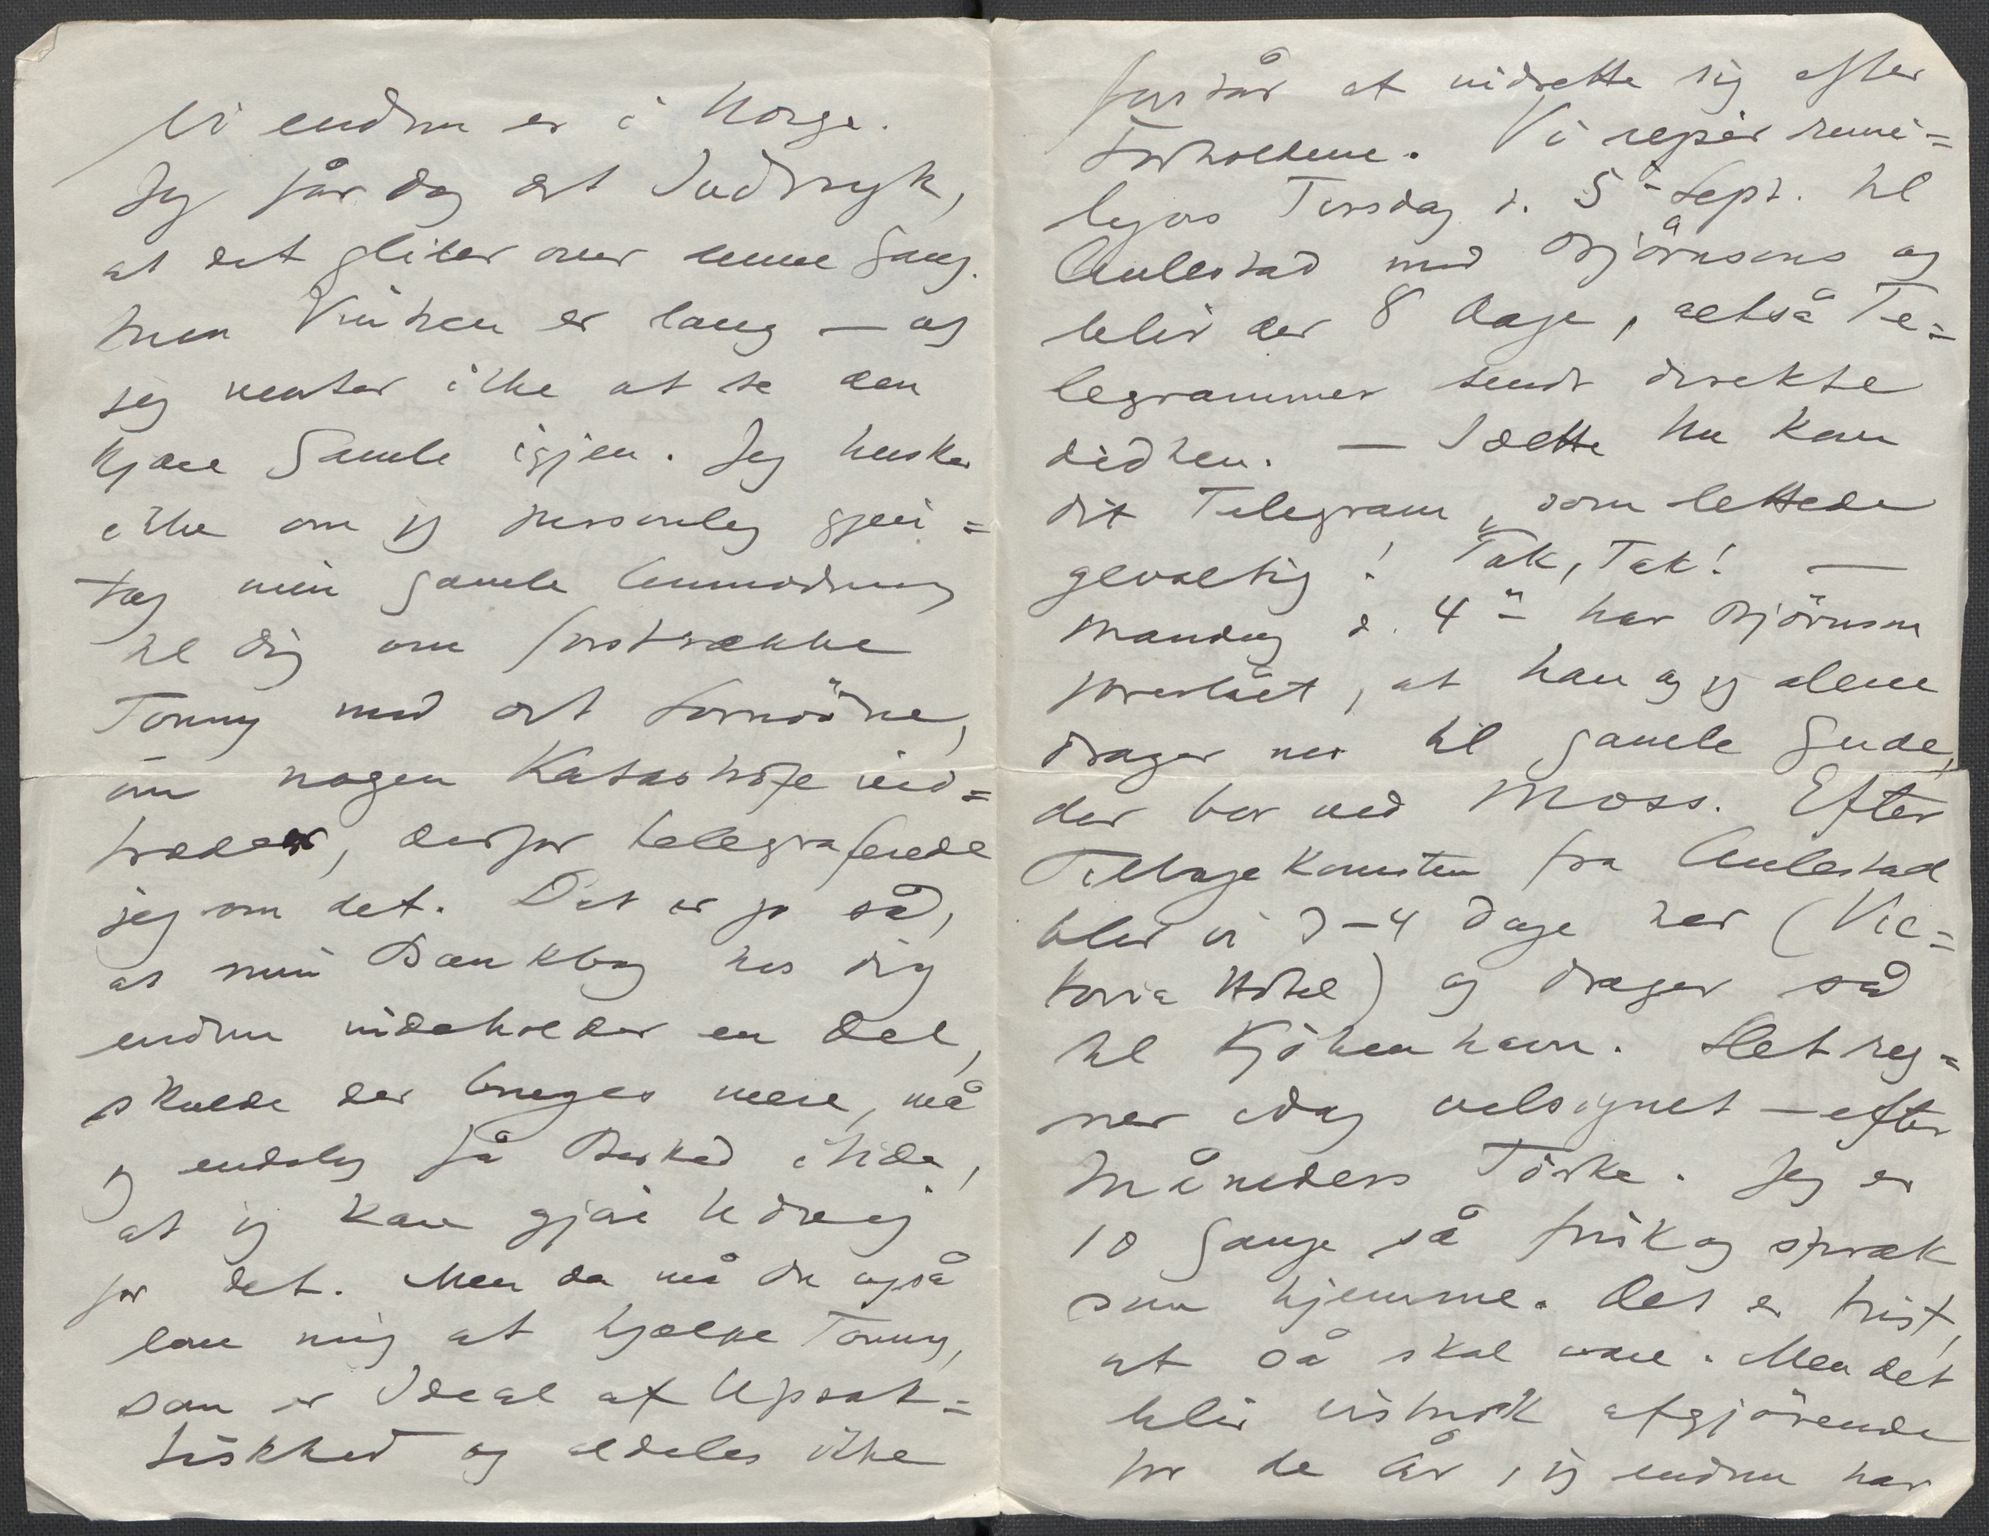 Vi endnu er i Norge.
Jeg får dog det Indtryk,
at det glider over denne Gang.
Men Vinteren er lang — og
jeg venter ikke at se den
kjære Gamle igjen. Jeg husker
ikke om jeg personlig gjen=
tog min gamle Anmodning
til dig om forstrække
Tonny med det Fornødne,
om nogen Katastrofe ind=
træder, derfor telegraferede
jeg om det. Det er jo så,
at min Bankbog hos dig
endnu indeholder en Del,
skulde der bruges mere, må
jeg endelig få Besked itide,
at jeg kan gjøre Udvej
for det. Men da må du også
love mig at hjælpe Tonny,
som er Ideal af Upsak=
tiskhed og aldeles ikke
forstår at indrette sig efter
Forholdene. Vi rejser rimi=
ligvis Tirsdag d. 5te Sept. til
Aulestad med Bjørnsons og
blir der 8 Dage, altså Te=
legrammer sendt direkte
didhen. — I dette Nu kom
dit Telegram, som lettede
gevaltig! Tak, Tak! —
Mandag d. 4de har Bjørnson
foreslået, at han og jeg alene
drager ned til gamle Gude,
der bor ved Moss. Efter
Tilbagekomsten fra Aulestad
blir vi 3-4 Dage her (Vic=
toria Hôtel) og drager så
til Kjøbenhavn. Det reg=
ner idag velsignet — efter
Måneders Tørke. Jeg er
10 Gange så frisk og spræk
som hjemme. Det er trist,
at så skal være. Men det
blir vistnok afgjørende
for de År, jeg endnu har